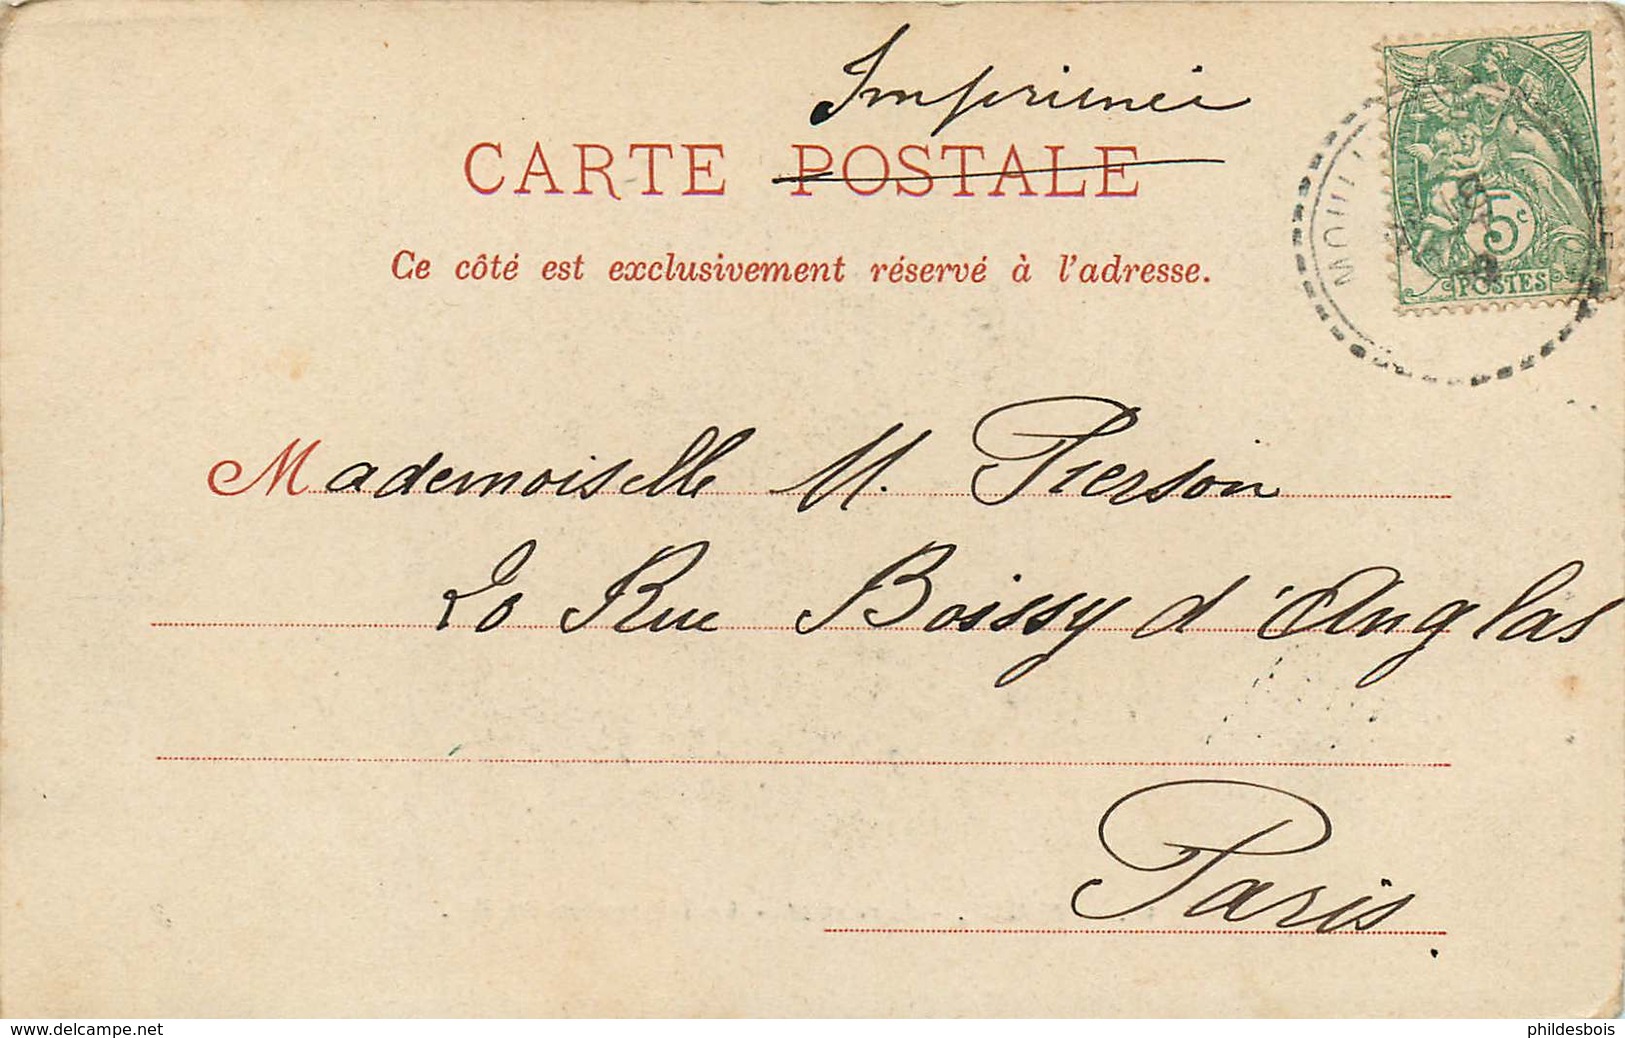 Imprimée
CARTE POSTALE
Ce côté est exclusivement réservé à l'adresse.
5c
POSTES
Mademoiselle M. Pierson
20 Rue Boissy d'Anglas
Paris.
www.delcampe.net
phildesbois